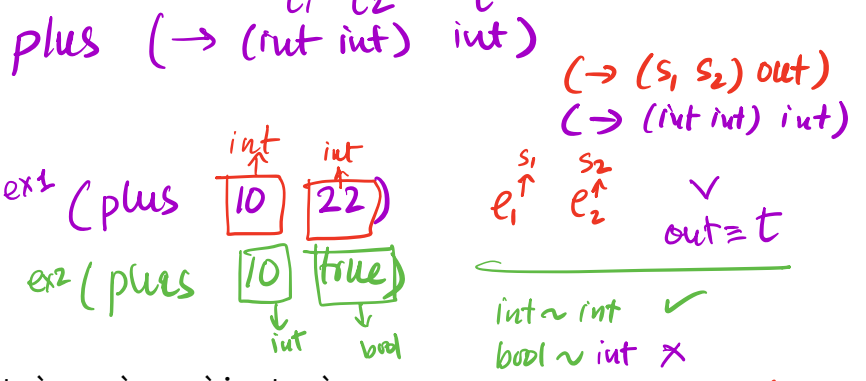 t1 t2 t
plus (→ (int int) int)
(→ (s₁ s₂) out)
(→ (int int) int)
int int s₁ s₂
ex1 (plus 10 22) e₁ e₂ ✓
out ≡ t
ex2 (plus 10 true)
int bool
int ~ int ✓
bool ~ int ✗